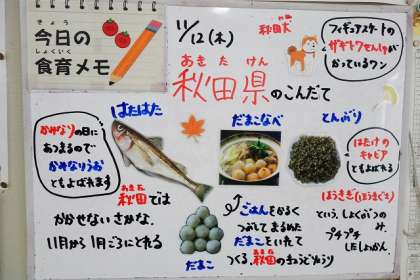 きょう
今日の
しょくいく
食育メモ
11/12(木)
秋田犬
フィギュアスケートの
ザギトワせんしゅが
かっているワン
あきた けん
秋田県のこんだて
はたはた
かみなりの日に
あつまるので
かみなりうお
ともよばれます
だまこなべ
とんぶり
はたけの
キャビア
ともよばれる
あきた
秋田では
かかせないさかな。
11月から1月ごろにとれる
だまこ
ごはんをかるく
つぶしてまるめた
だまこをいれて
つくる、秋田のきょうどりょうり
ほうきぎ(ほうきぐさ)
という、しょくぶつのみ。
プチプチ
したしょっかん。